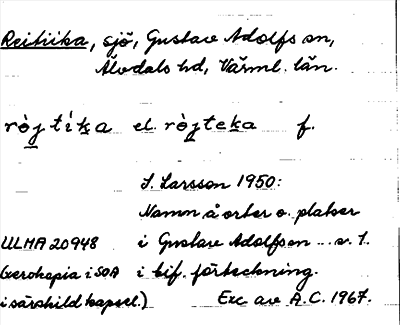 Reitika, sjö, Gustav Adolfs sn,
Älvdals hd, Värml. län.
rὸj tíka el. rὸjteka f.
S. Larsson 1950:
Namn å orter o. platser
ULMA 20948 i Gustav Adolfsn ... s. 1.
(xerokopia i SOA i bif. förteckning.
i särskild kapsel.) Exc av A.C. 1967.